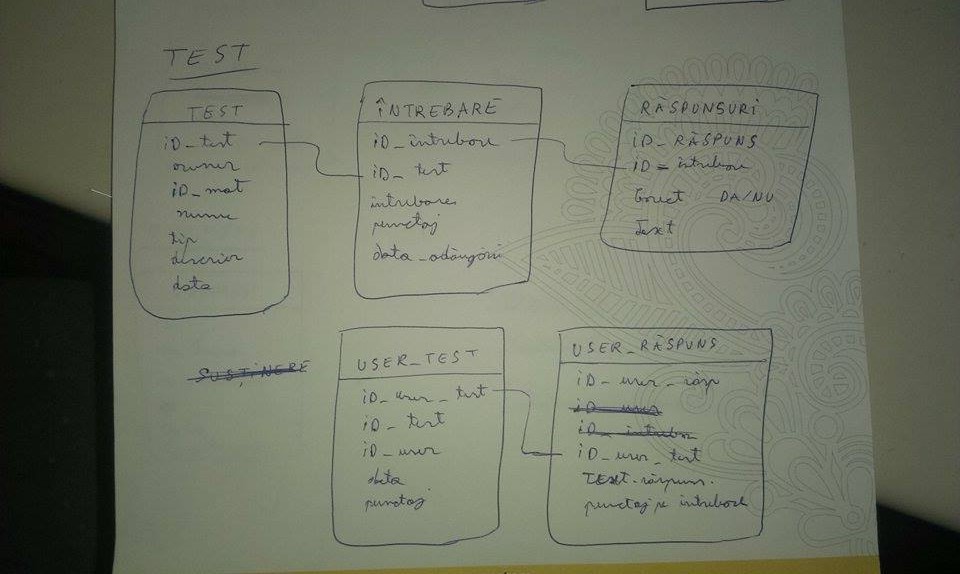 TEST
TEST
iD_test
owner
iD_mat
nume
tip
descrier
data
ÎNTREBARE
iD_intrebare
iD_test
intrebarea
punctaj
data_adăugării
RĂSPUNSURI
iD_RĂSPUNS
iD_intrebare
Corect DA/NU
Text
SUSȚINERE
USER_TEST
iD_user_test
iD_test
iD_user
data
punctaj
USER_RĂSPUNS
iD_user_răsp
iD_user
iD_intrebare
iD_user_test
TEXT_răspuns.
punctaj pe intrebare